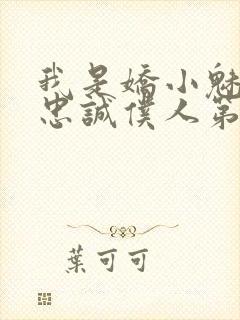 我是嬌小魅
忠誠僕人第
葉可可